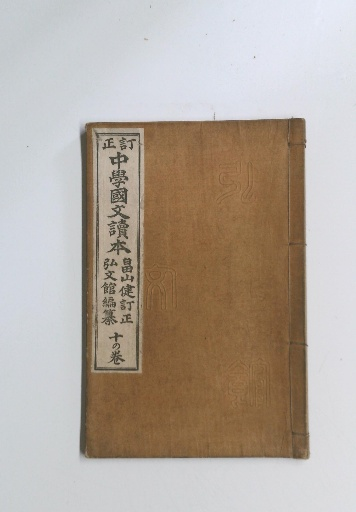 訂正
中學國文讀本
畠山健訂正
弘文館編纂
十の巻
弘
文
館